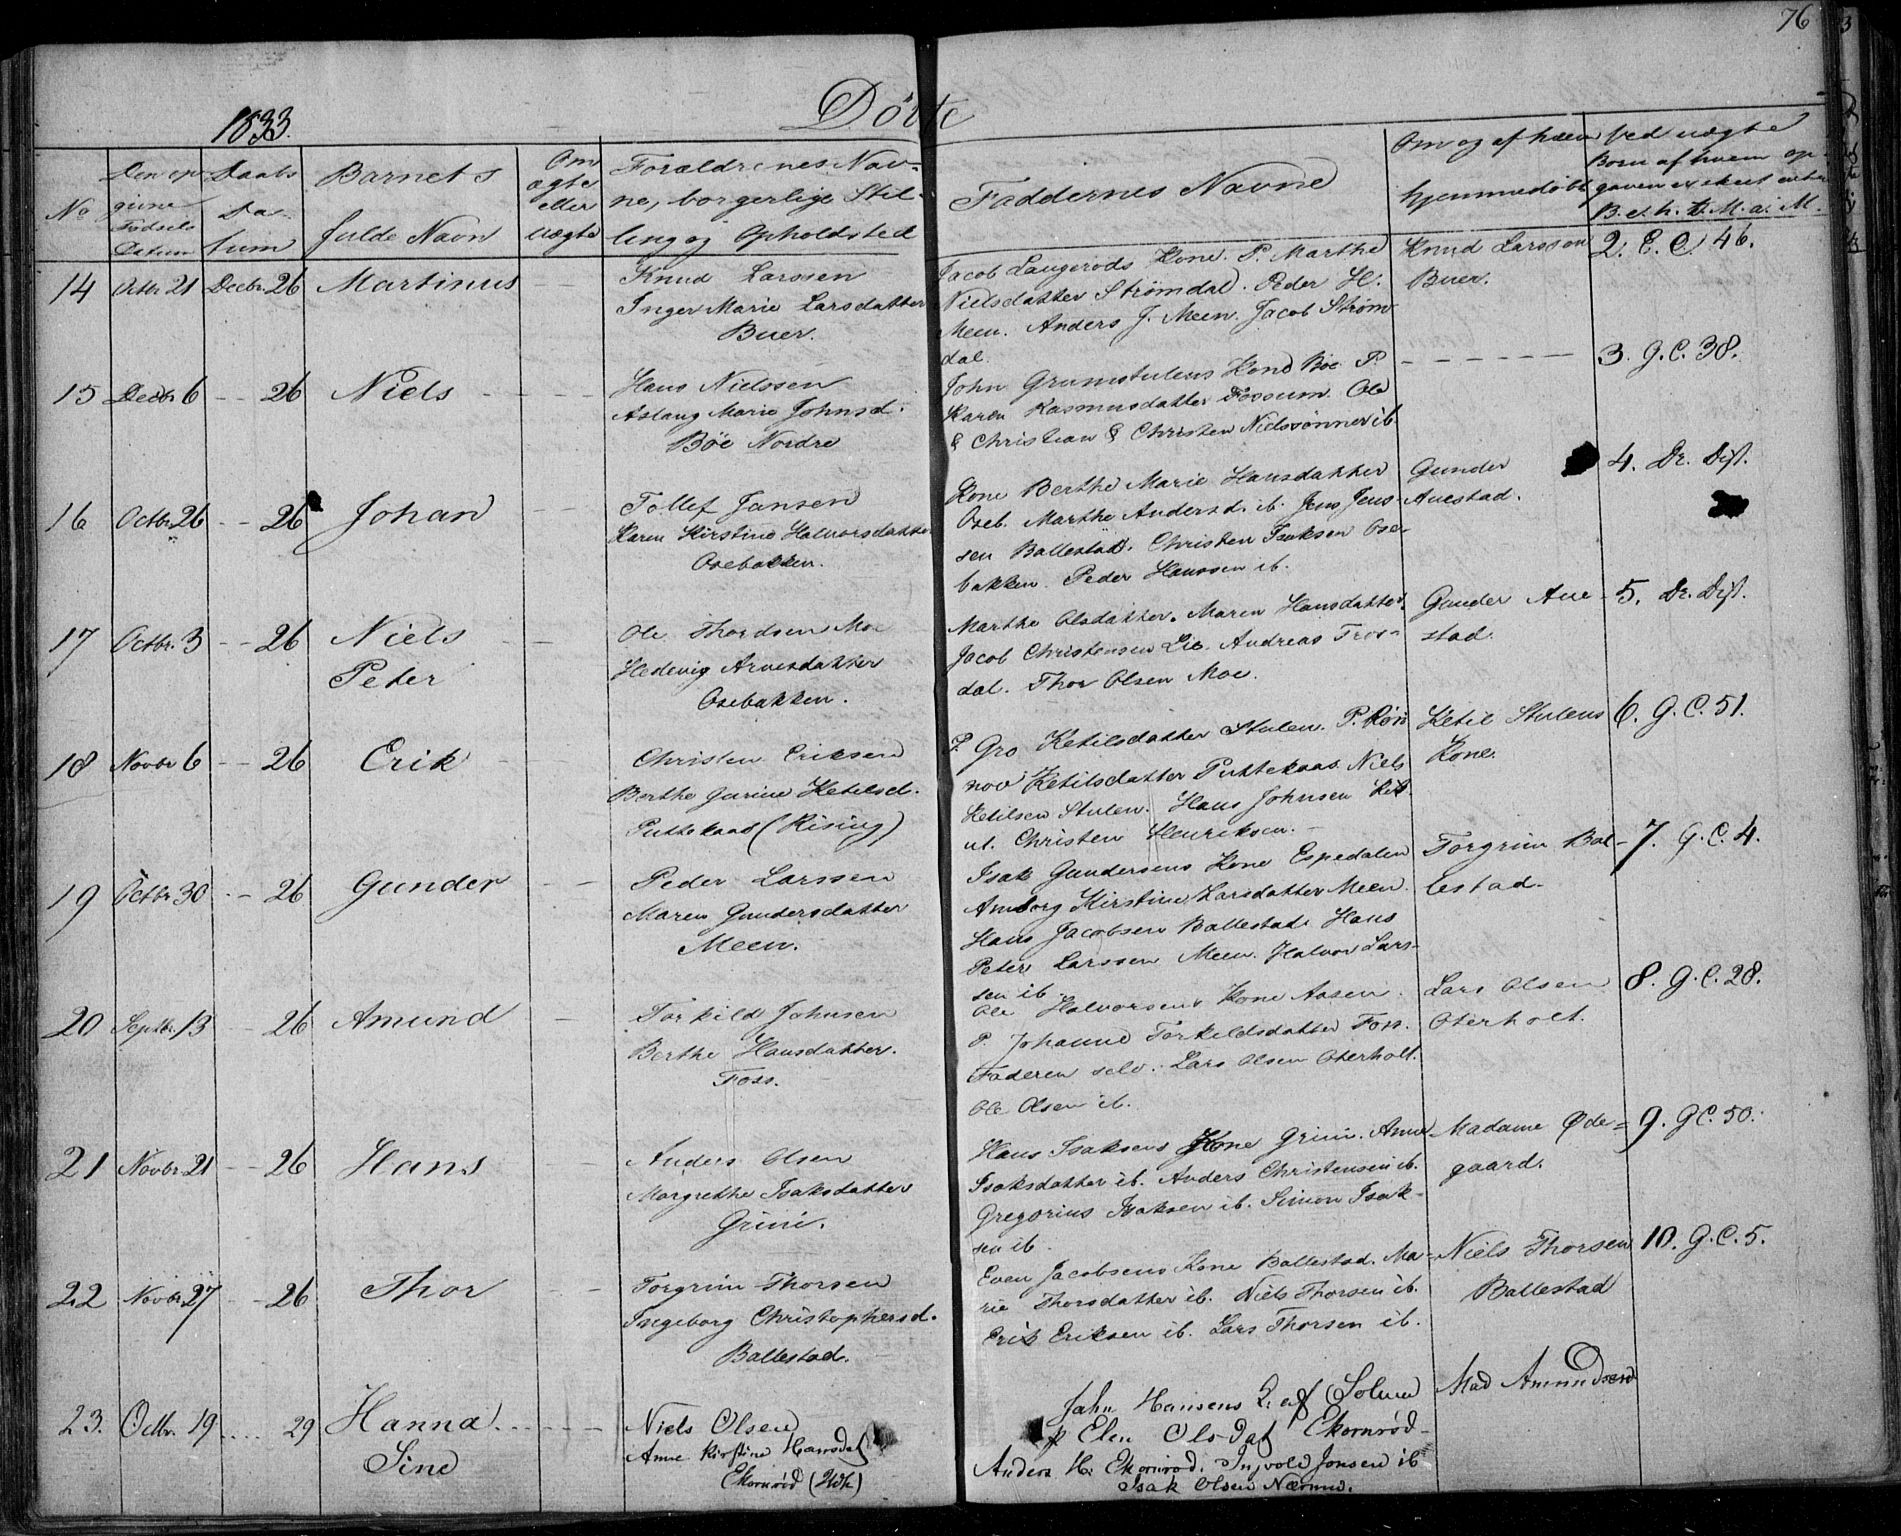 76
1833.
Døbte
No
Den op-
givne
Fødsels
Datum
Daabs
Da-
tum
Barnets
fulde Navn
Om
ægte
eller
uægte
Forældrenes Nav-
ne, borgerlige Stil-
ling og Opholdsted
Faddernes Navne
Om og af hvem
hjemmedøbt
Ved uægte
Børn af hvem op-
gaven er skeet
B. et. h. D. M. a. M.
14 Octbr 21 Decbr 26 Martinus
Knud Larssen
Inger Marie Larsdatter
Buer.
Jacob Laugerøds Kone. P. Marthe
Nielsdatter Strømdal. Peder H.
Meen. Anders J. Meen. Jacob Strøm
dal.
Knud Larsson
Buer.
2. E. C. 46.
15 Decbr 6 - - 26 Niels
Hans Nielssen
Aslaug Marie Johnsd.
Bøe Nordre
John Grumstulens Kone Bøe P.
Karen Rasmusdatter Fossum. Ole
& Christian & Christen Nielssønner ib
3. G. C. 38.
16 Octbr 26 - - 26 Johan
Tollef Jansen
Karen Kirstine Halvorsdatter
Osebakken.
Kone Berthe Marie Hansdatter
Oseb. Marthe Andersd. ib. Jens Jens-
sen Ballestad. Christen Isaksen Ose-
bakken. Peder Hanssen ib.
Gunder
Auestad.
4. Dr. Dist.
17 Octbr. 3 - - 26 Niels
Peter
Ole Thordsen Moe
Hedevig Arnesdatter
Osebakken.
Marthe Olsdatter. Maren Hansdatter.
Jacob Christensen Lie. Andreas Tros-
dal. Thor Olsen Moe.
Gunder Aue-
stad.
5. Dr. Dist.
18 Novbr 6 - - 26 Erik
Christen Eriksen
Berthe Gurine Ketilsd.
Puttekaas (Rising)
P. Gro Ketilsdatter Stulen. P. Røn
nov Ketilsdatter Puttekaas. Niels
Ketilsen Stulen. Hans Johnsen
Christen Henriksen.
Ketil Stulens
Kone.
6. G. C. 51.
19 Octbr 30 - - 26 Gunder
Peder Larssen
Maren Gundersdatter
Meen.
Isak Gundersens Kone Espedalen
Amborg Kirstine Larsdatter Meen.
Hans Jacobsen Ballestad. Hans
Peter Larssen Meen. Halvor Lars-
sen ib.
Torgrim Bal-
lestad.
7. G. C. 4.
20 Septbr. 13 - 26 Amund
Torkild Johnsen
Berthe Hansdatter.
Foss.
Ole Halvorsens Kone Aasen.
P. Johanne Torkeldsdatter Foss.
Faderen selv. Lars Olsen Oterholt.
Ole Olsen ib.
Lars Olsen
Oterholt.
8. G. C. 28.
21 Novbr 21 - - 26 Hans
Anders Olsen
Margrethe Isaksdatter
Grini.
Hans Isaksens Kone Grini. Anne
Isaksdatter ib. Anders Christensen ib.
Gregorius Isaksen ib. Simon Isak-
sen ib.
Madame Øde-
gaard.
9. G C. 50.
22 Novbr 27 - - 26 Thor
Torgrim Thorsen
Ingeborg Christophersd.
Ballestad.
Even Jacobsens Kone Ballestad. Ma-
rie Thorsdatter ib. Niels Thorsen ib.
Erik Eriksen ib. Lars Thorsen ib.
Niels Thorsen
Ballestad
10. G. C. 5.
23. Octbr. 19 .... 29 Hanna
Sine
Niels Olsen
Anne Kirstine Hansdat
Ekornrød
John Hansens Solum
p Elen Olsdat Ekornrød
Anders H. Ekornrød. Ingvold Jonsen ib
Isak Olsen Nærum.
Mad Amundsen